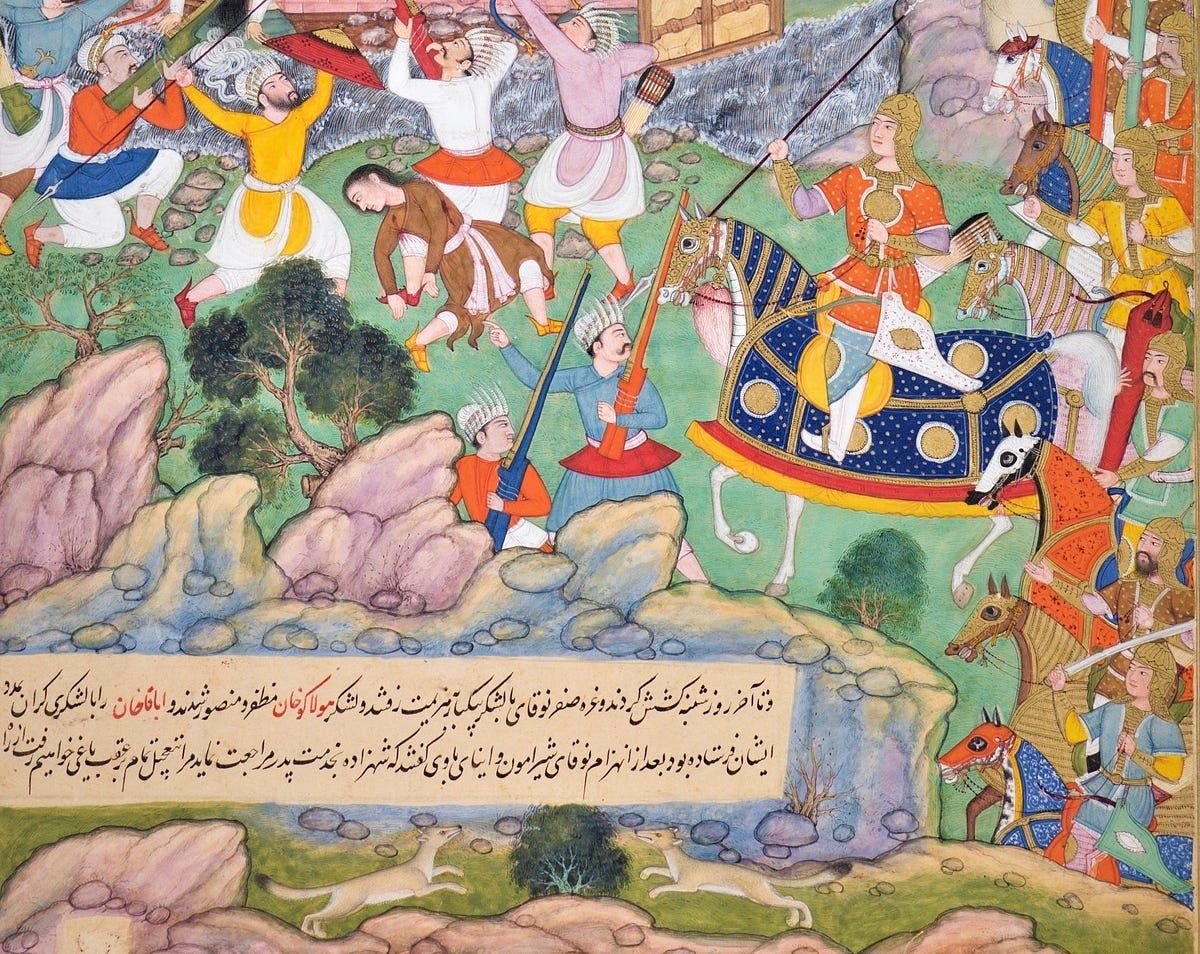 و تا آخر روز شنبه کشش کردند و غره صفر نوقای با لشکر بهزیمت رفتند و لشکر هولاکو خان مظفر و منصور شدند و اباقا خان را با لشکری کران بمدد
ایشان فرستاده بود بعد از انهزام نوقای شیرامون و ابتای باوی گفتند که شهزاده بخدمت پدر مراجعت نماید تمام بر عقب یاغی خواهیم رفت